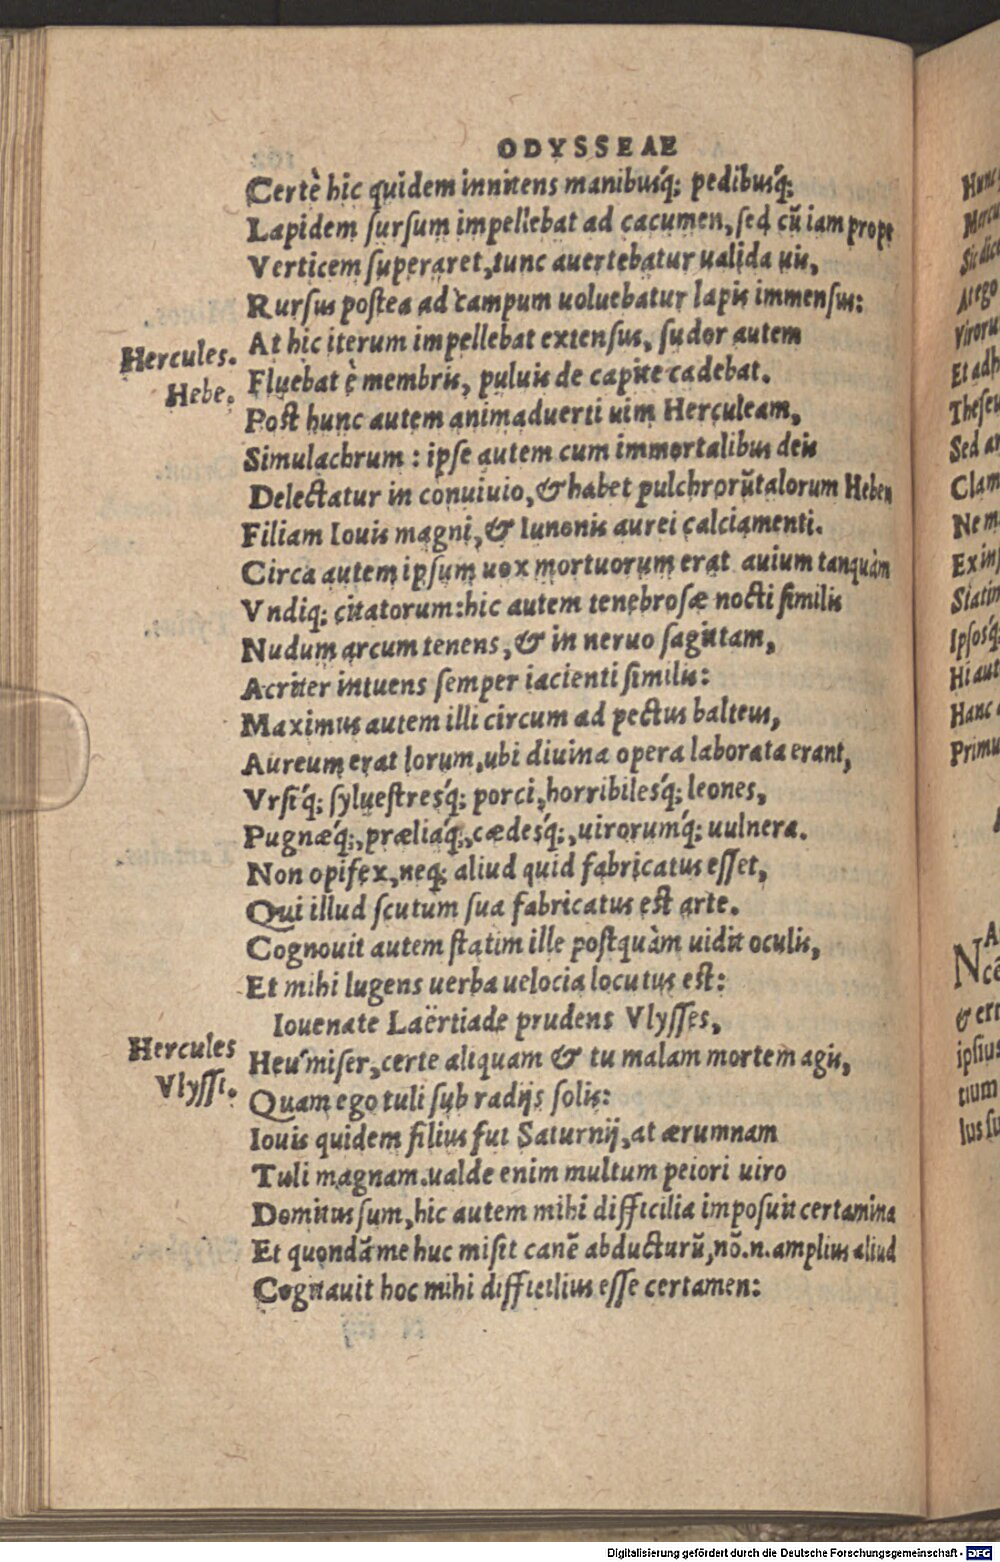 ODYSSEAE
Certè hic quidem innitens manibusq́; pedibusq́;
Lapidem sursum impellebat ad cacumen, sed cũ iam prope
Verticem superaret, tunc auertebatur ualida uis,
Rursus postea ad campum uoluebatur lapis immensus:
At hic iterum impellebat extensus, sudor autem
Hercules.
Fluebat è membris, puluis de capite cadebat.
Hebe.
Post hunc autem animaduerti uim Herculeam,
Simulachrum : ipse autem cum immortalibus deis
Delectatur in conuiuio, & habet pulchrorũ talorum Heben
Filiam Iouis magni, & Iunonis aurei calciamenti.
Circa autem ipsum uox mortuorum erat auium tanquàm
Vndiq; citatorum: hic autem tenebrosæ nocti similis
Nudum arcum tenens, & in neruo sagittam,
Acriter intuens semper iacienti similis:
Maximus autem illi circum ad pectus balteus,
Aureum erat lorum, ubi diuina opera laborata erant,
Vrsiq́; syluestresq́; porci, horribilesq́; leones,
Pugnæq́;, præliaq́;, cædesq́;, uirorumq́; uulnera.
Non opifex, neq; aliud quid fabricatus esset,
Qui illud scutum sua fabricatus est arte.
Cognouit autem statim ille postquàm uidit oculis,
Et mihi lugens uerba uelocia locutus est:
Iouenate Laërtiade prudens Vlysses,
Hercules
Heu miser, certe aliquam & tu malam mortem agis,
Vlyssi.
Quam ego tuli sub radijs solis:
Iouis quidem filius fui Saturnij, at ærumnam
Tuli magnam. ualde enim multum peiori uiro
Domitus sum, hic autem mihi difficilia imposuit certamina
Et quondã me huc misit canẽ abducturũ, nõ .n. amplius aliud
Cogitauit hoc mihi difficilius esse certamen:
Digitalisierung gefördert durch die Deutsche Forschungsgemeinschaft - DFG